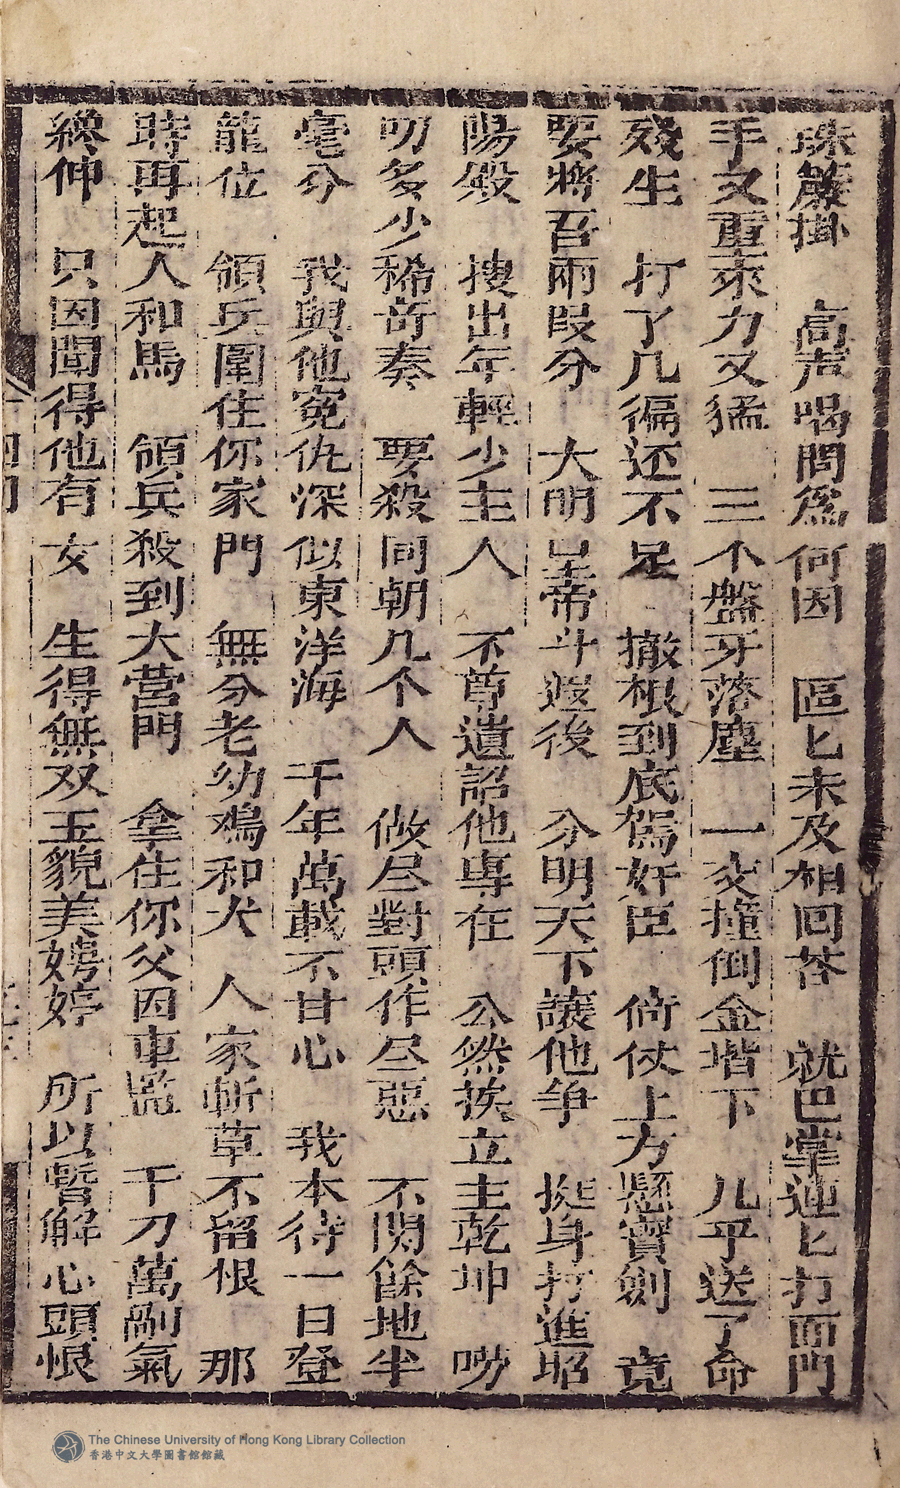 珠簾掛　高声喝問爲何因　區匕未及相回答　就巴掌連匕打面門
手又重來力又猛　三个盤牙落塵　一交撞倒金堦下　几乎送了命
殘生　打了几徧还不足　撤根到底駡奸臣　倚仗上方懸寳劍　竟
要將吾兩段分　大明皇帝斗返後　分明天下讓他争　挺身打進昭
陽殿　搜出年輕少主人　不尊遺詔他專在　公然挨立主乾坤　嘮
叨多少稀奇奏　要殺同朝几个人　做尽對頭作尽惡　不関餘地半
毫分　我與他寃仇深似東洋海　千年萬載不甘心　我本待一日登
龍位　領兵圍住你家門　無分老幼鳮和犬　人家斬草不留恨　那
時再起人和馬　領兵殺到大營門　拿住你父囚車監　千刀萬剮氣
縂伸　只因聞得他有女　生得無双玉貌美娉婷　所以暫解心頭恨
The Chinese University of Hong Kong Library Collection
香港中文大學圖書館館藏